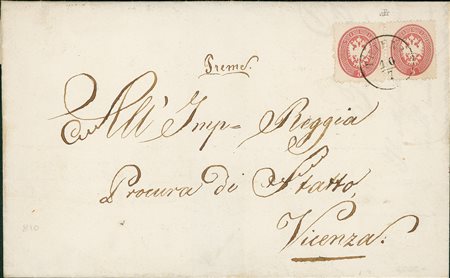 Preme
All' Imp= Reggia
Procura di Statto,
Vicenza:
10
7